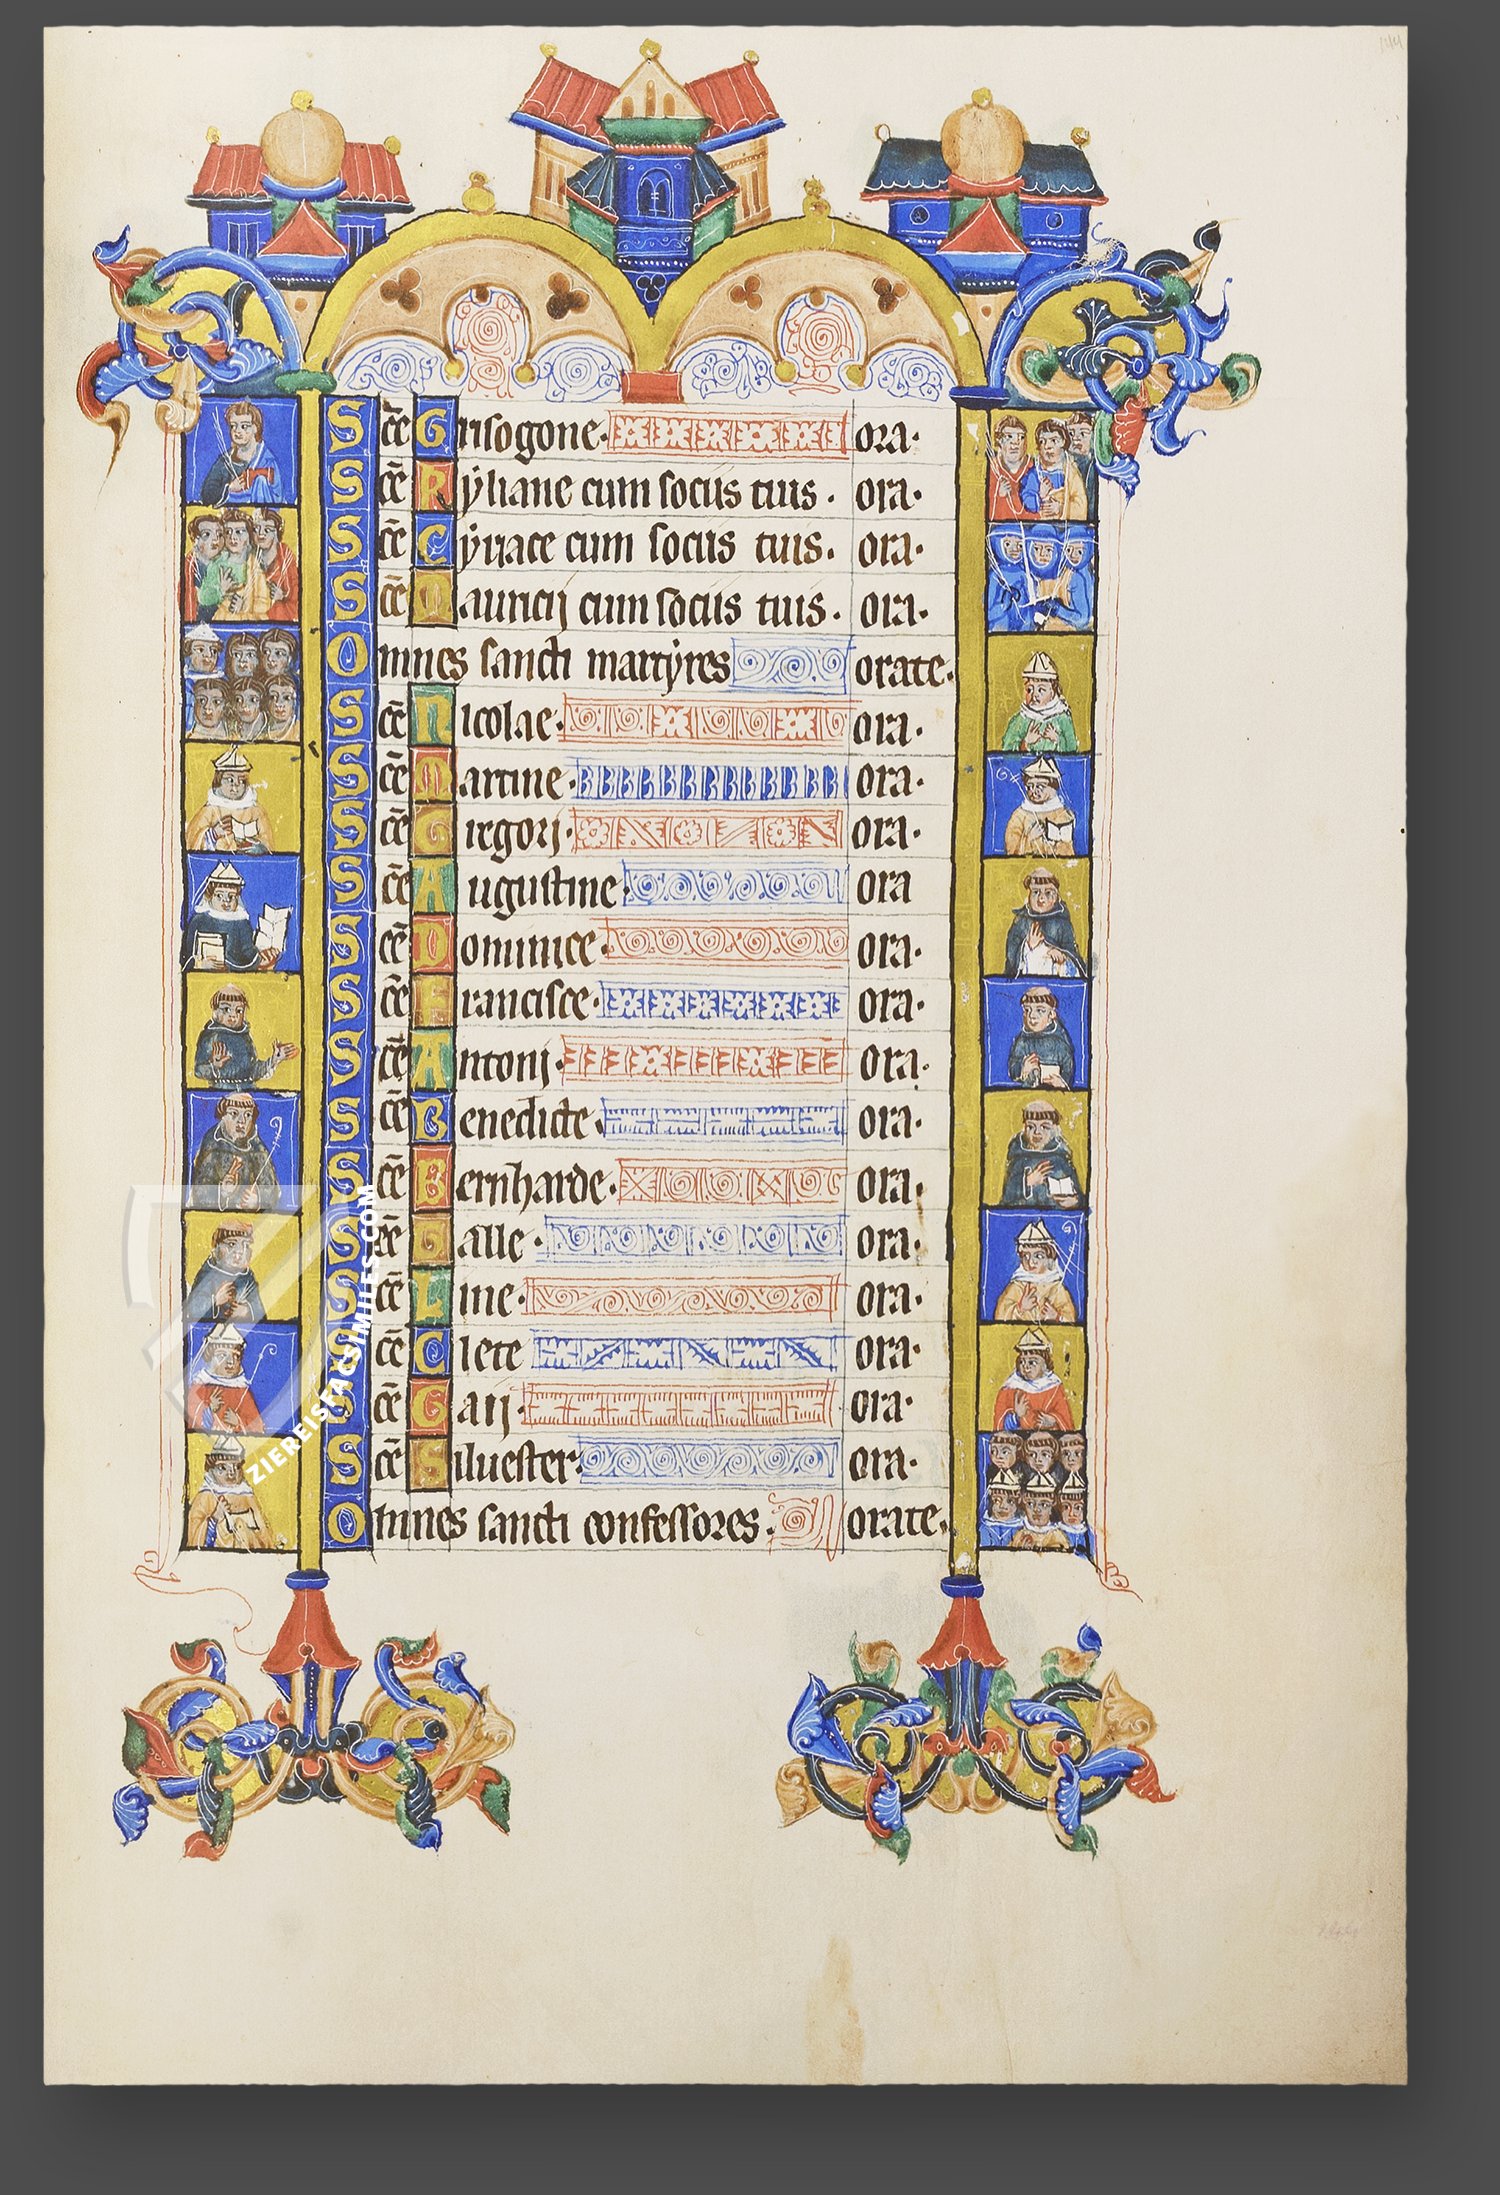 Sc̄e Grisogone. ora.
Sc̄e Kyliane cum sociis tuis. ora.
Sc̄e Cyriace cum sociis tuis. ora.
Sc̄e Mauricij cum sociis tuis. ora.
Omnes sancti martyres orate.
Sc̄e Nicolae. ora.
Sc̄e Martine. ora.
Sc̄e Gregorj. ora.
Sc̄e Augustine. ora
Sc̄e Dominice. ora.
Sc̄e Francisce. ora.
Sc̄e Antonj. ora.
Sc̄e Benedicte. ora.
Sc̄e Bernharde. ora.
Sc̄e Galle. ora.
Sc̄e Line. ora.
Sc̄e Clete ora.
Sc̄e Gaij. ora.
Sc̄e Siluester. ora.
Omnes sancti confessores. orate.
ZIEREISFACSIMILES.COM